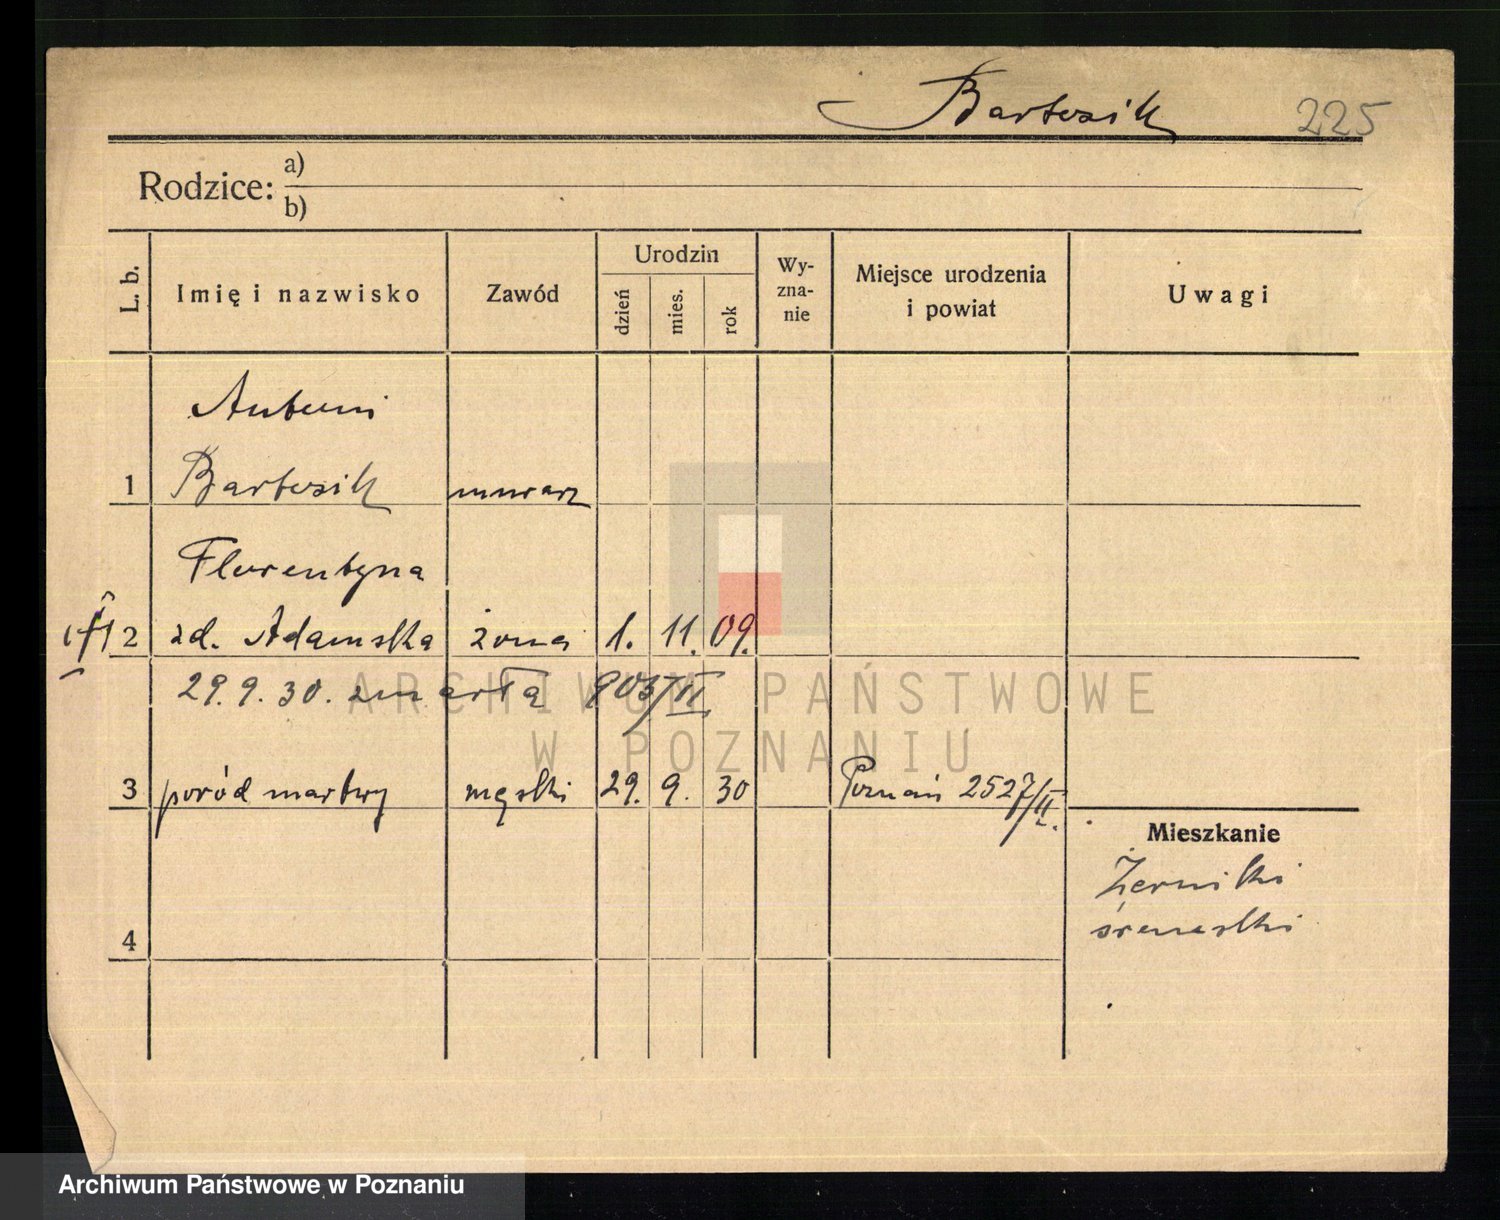 Bartosik 225
Rodzice: a)
b)
L. b. Imię i nazwisko Zawód Urodzin dzień mies. rok Wy-zna-nie Miejsce urodzenia i powiat Uwagi
Antoni
1 Bartosik murarz
Florentyna
2 zd. Adamska żona 1. 11. 09.
29. 9. 30. zmarła 903/II
3 poród martwy męski 29. 9. 30 Poznań 2527/II.
Mieszkanie
Żerniki
śremskki
4
ARCHIWUM PAŃSTWOWE
W POZNANIU
Archiwum Państwowe w Poznaniu